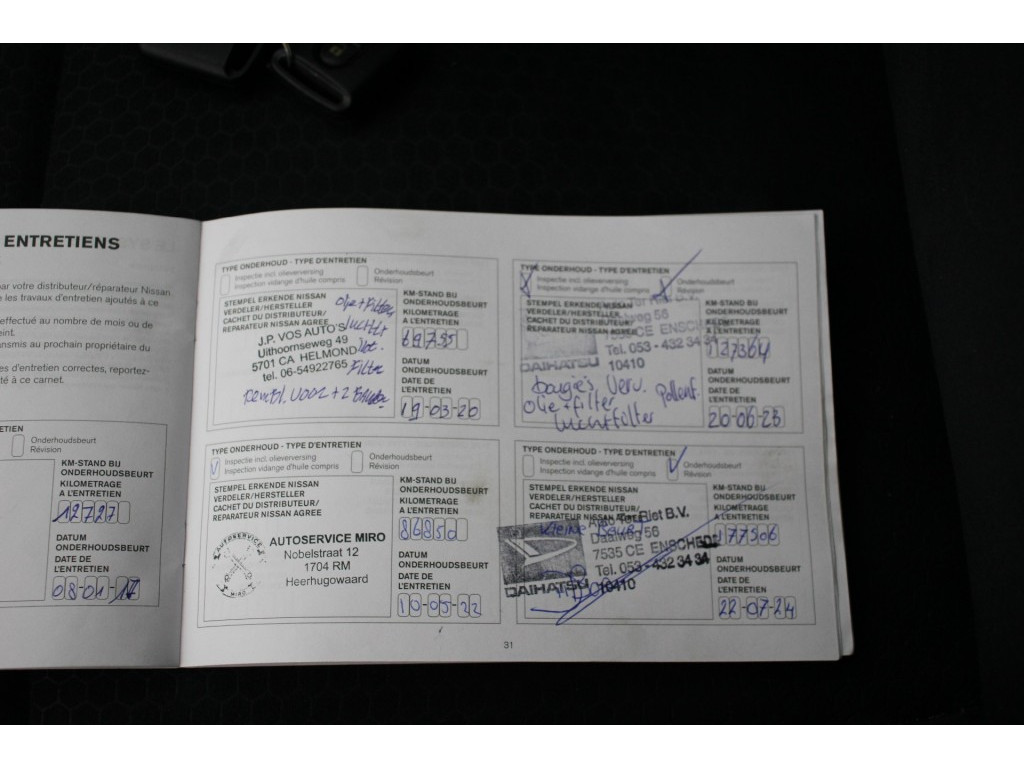 ENTRETIENS
par votre distributeur/réparateur Nissan
e les travaux d'entretien ajoutés à ce
effectué au nombre de mois ou de
eint.
ansmis au prochain propriétaire du
es d'entretien correctes, reportez-
té à ce carnet.
ETIEN
Onderhoudsbeurt
Révision
KM-STAND BIJ
ONDERHOUDSBEURT
KILOMETRAGE
A L'ENTRETIEN
12727
DATUM
ONDERHOUDSBEURT
DATE DE
L'ENTRETIEN
08-01-17
TYPE ONDERHOUD - TYPE D'ENTRETIEN
Inspectie incl. olieverversing
Inspection vidange d'huile compris
Onderhoudsbeurt
Révision
STEMPEL ERKENDE NISSAN
VERDELER/HERSTELLER
CACHET DU DISTRIBUTEUR/
REPARATEUR NISSAN AGREE
Olie+Filter
J.P. VOS AUTO'S
Uithoornseweg 49
5701 CA HELMOND
tel. 06-54922765
Filter
KM-STAND BIJ
ONDERHOUDSBEURT
KILOMETRAGE
A L'ENTRETIEN
69755
DATUM
ONDERHOUDSBEURT
DATE DE
L'ENTRETIEN
19-03-20
TYPE ONDERHOUD - TYPE D'ENTRETIEN
Inspectie incl. olieverversing
Inspection vidange d'huile compris
Onderhoudsbeurt
Révision
STEMPEL ERKENDE NISSAN
VERDELER/HERSTELLER
CACHET DU DISTRIBUTEUR/
REPARATEUR NISSAN AGREE
56
CE ENSCH
Tel. 053-432 34 34
DAIHATSU 10410
bougies Verv.
Olie+filter
Luchtfilter
Pollenf.
KM-STAND BIJ
ONDERHOUDSBEURT
KILOMETRAGE
A L'ENTRETIEN
127364
DATUM
ONDERHOUDSBEURT
DATE DE
L'ENTRETIEN
20-06-23
TYPE ONDERHOUD - TYPE D'ENTRETIEN
Inspectie incl. olieverversing
Inspection vidange d'huile compris
Onderhoudsbeurt
Révision
STEMPEL ERKENDE NISSAN
VERDELER/HERSTELLER
CACHET DU DISTRIBUTEUR/
REPARATEUR NISSAN AGREE
AUTOSERVICE
MIRO
AUTOSERVICE MIRO
Nobelstraat 12
1704 RM
Heerhugowaard
KM-STAND BIJ
ONDERHOUDSBEURT
KILOMETRAGE
A L'ENTRETIEN
86850
DATUM
ONDERHOUDSBEURT
DATE DE
L'ENTRETIEN
10-05-22
TYPE ONDERHOUD - TYPE D'ENTRETIEN
Inspectie incl. olieverversing
Inspection vidange d'huile compris
Onderhoudsbeurt
Révision
STEMPEL ERKENDE NISSAN
VERDELER/HERSTELLER
CACHET DU DISTRIBUTEUR/
REPARATEUR NISSAN AGREE
Ter Riet B.V.
Kleine Beurt
Daalweg 56
7535 CE ENSCHEDE
Tel. 053-432 34 34
DAIHATSU 10410
KM-STAND BIJ
ONDERHOUDSBEURT
KILOMETRAGE
A L'ENTRETIEN
177506
DATUM
ONDERHOUDSBEURT
DATE DE
L'ENTRETIEN
22-07-24
31